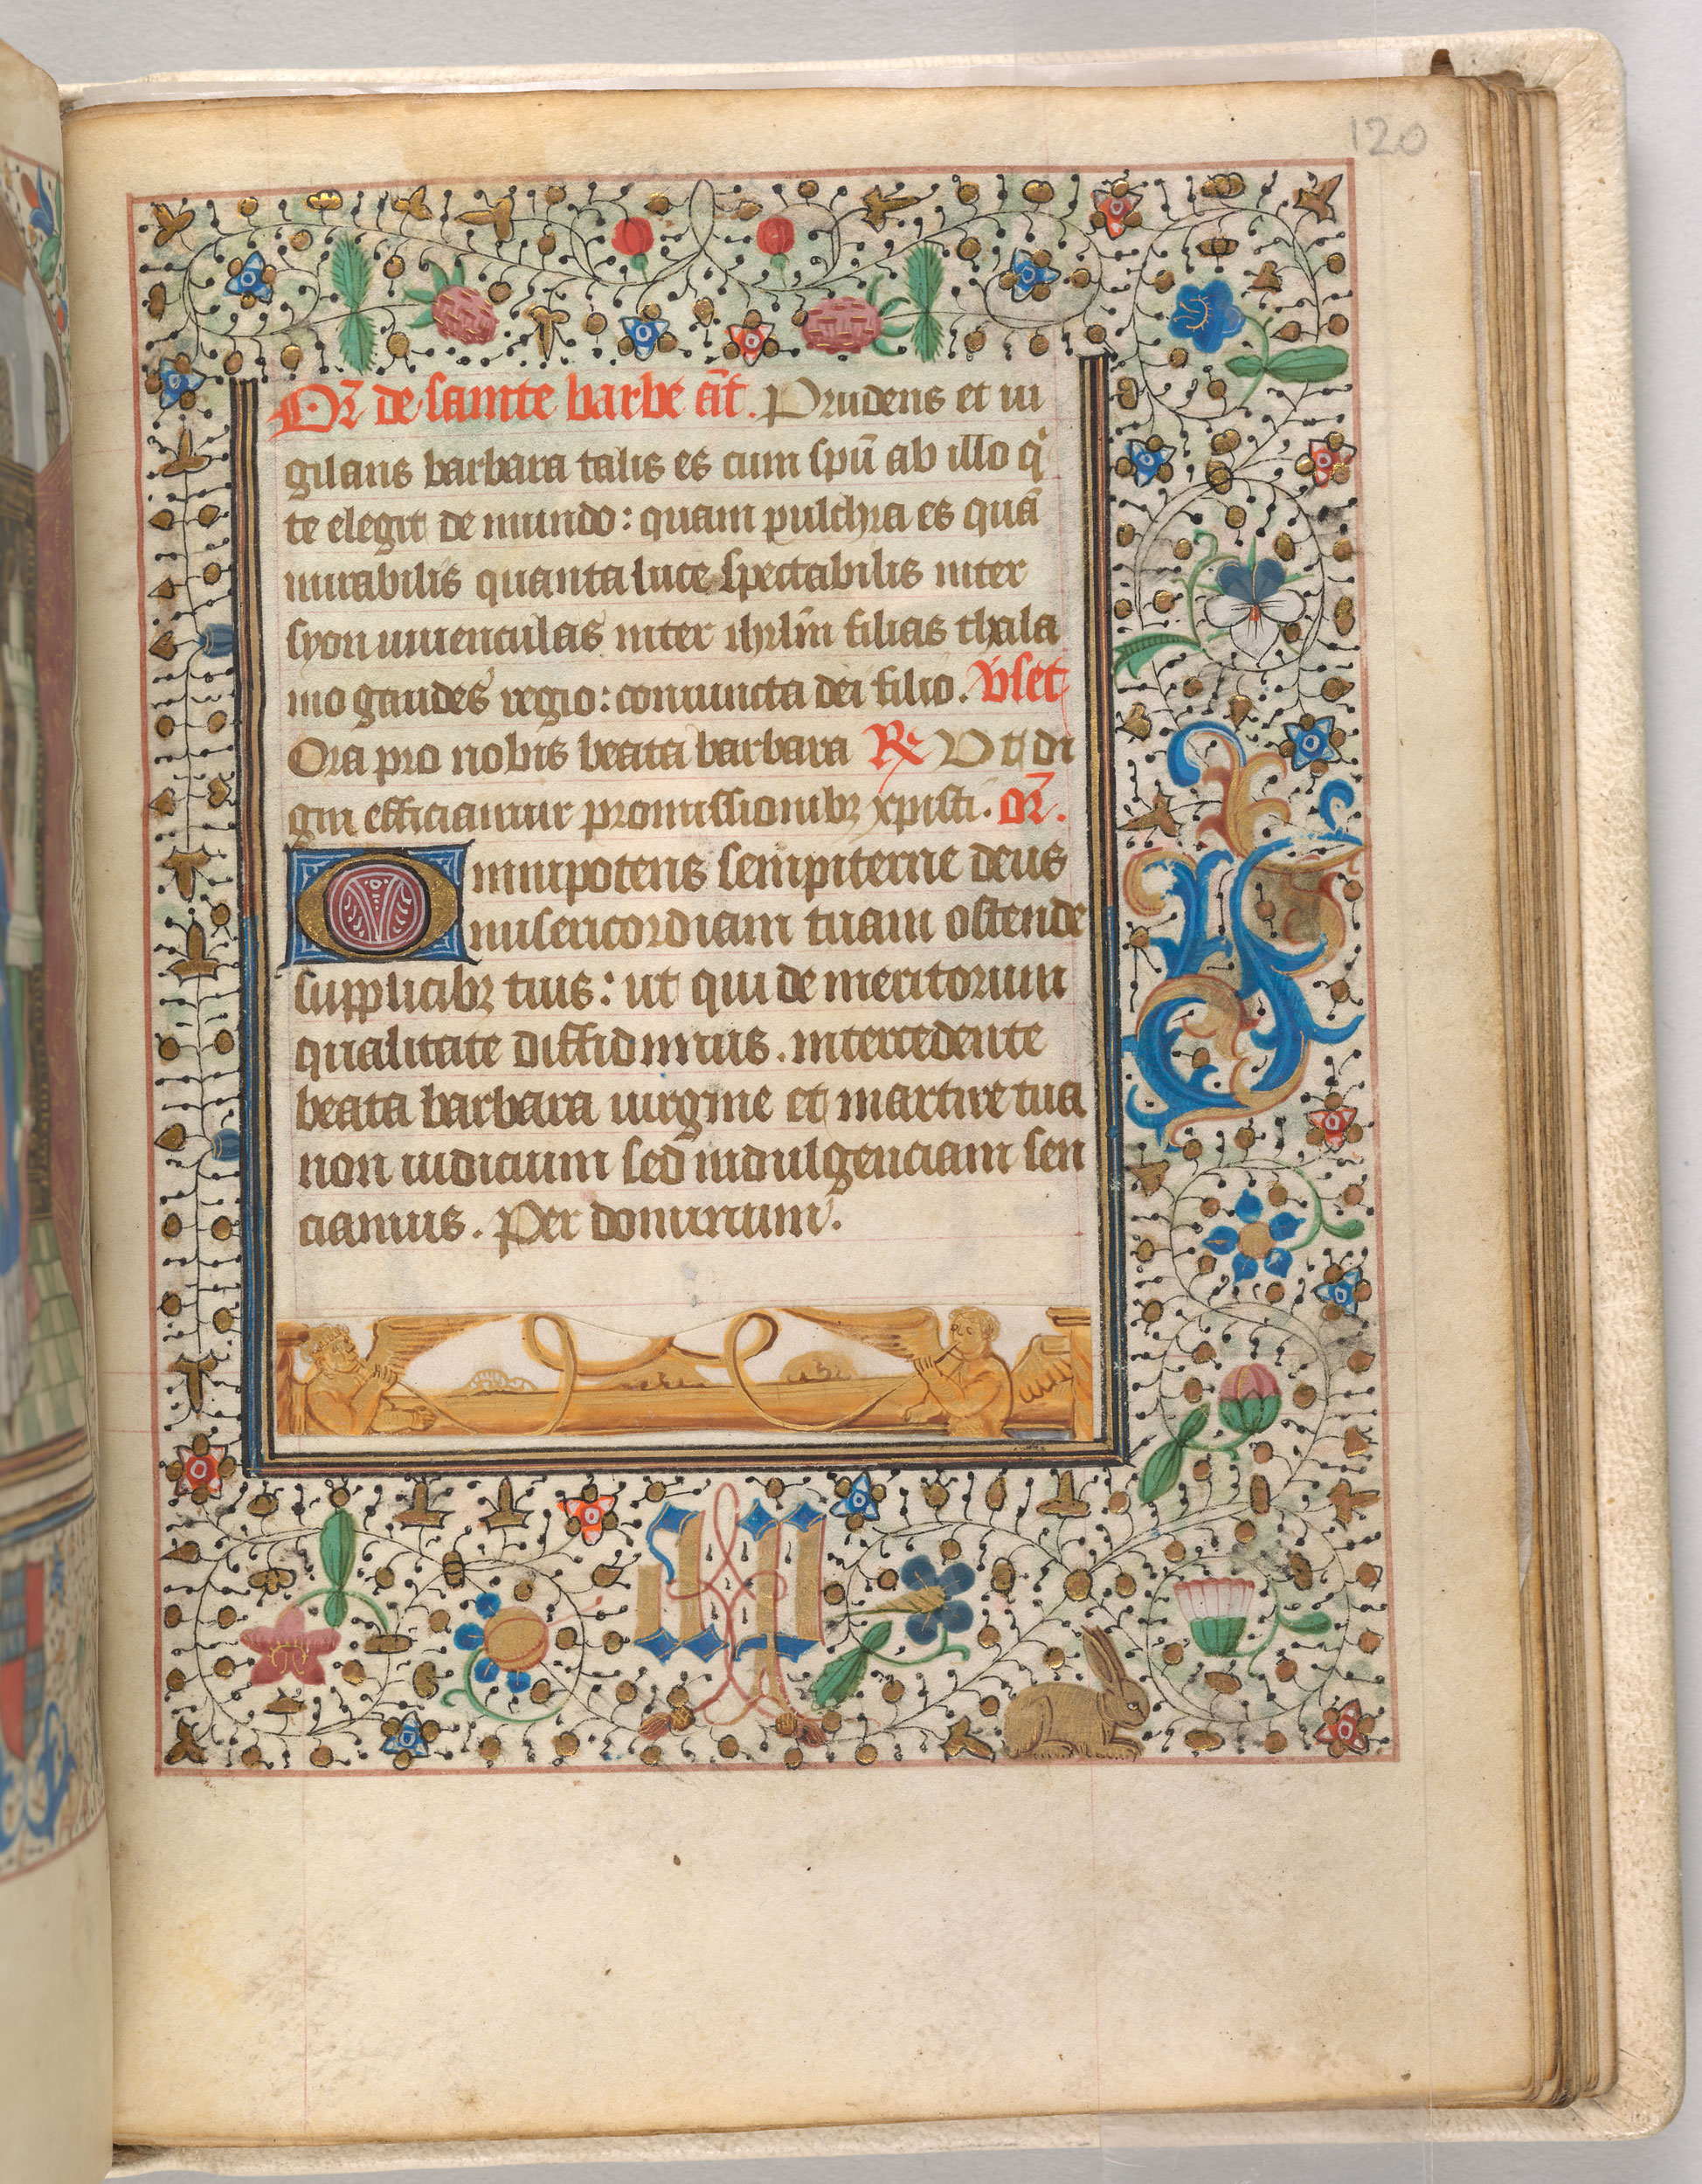 120
Or̄ de sainte barbe ant̄. Prudens et ui
gilans barbara talis es cum spū ab illo q
te elegit de mundo: quam pulchra es quā
mirabilis quanta luce spectabilis inter
syon iuuenculas inter ihrlm̄ filias thala
mo gaudes regio: coniuncta dei filio. Vset
Ora pro nobis beata barbara R Vt di
gni efficiamur promissionibꝫ xpisti. or̄.
Omnipotens sempiterne deus
misericordiam tuam ostende
supplicibꝫ tuis: ut qui de meritorum
qualitate diffidimus. intercedente
beata barbara uirgine et martire tua
non iudicium sed indulgenciam sen
ciamus. Per dominum.